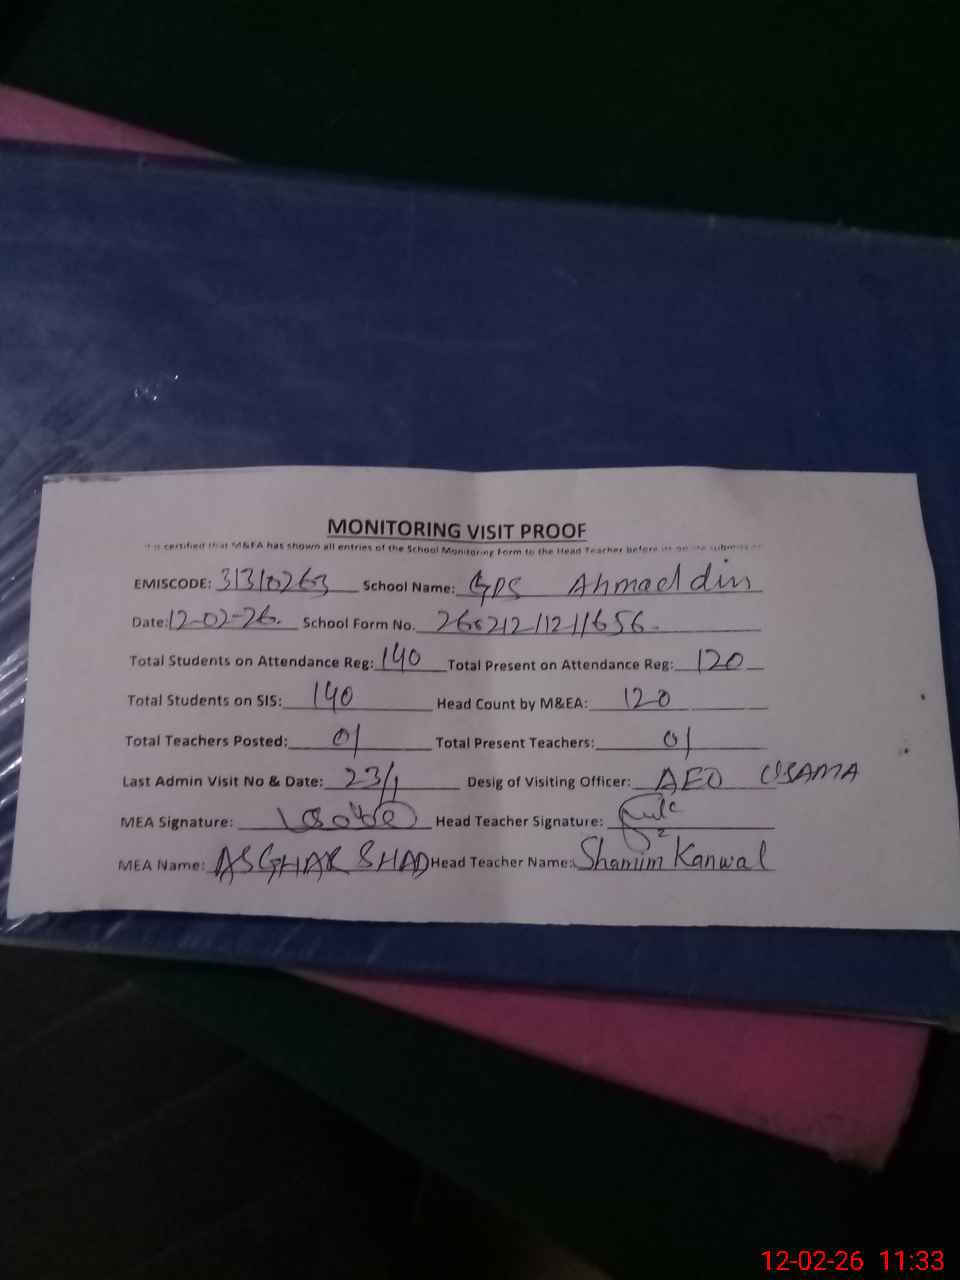 MONITORING VISIT PROOF
It is certified that M&EA has shown all entries of the School Monitoring Form to the Head Teacher before its onsite submission
EMISCODE: 31310263 School Name: GPS Ahmaddin
Date: 12-02-26. School Form No.
Total Students on Attendance Reg: 140 Total Present on Attendance Reg: 120
Total Students on SIS: 140 Head Count by M&EA: 120
Total Teachers Posted: 01 Total Present Teachers: 01
Last Admin Visit No & Date: 23/1 Desig of Visiting Officer: AEO USAMA
MEA Signature: Head Teacher Signature:
MEA Name: ASGHAR SHAD Head Teacher Name: Shamim Kanwal
12-02-26 11:33